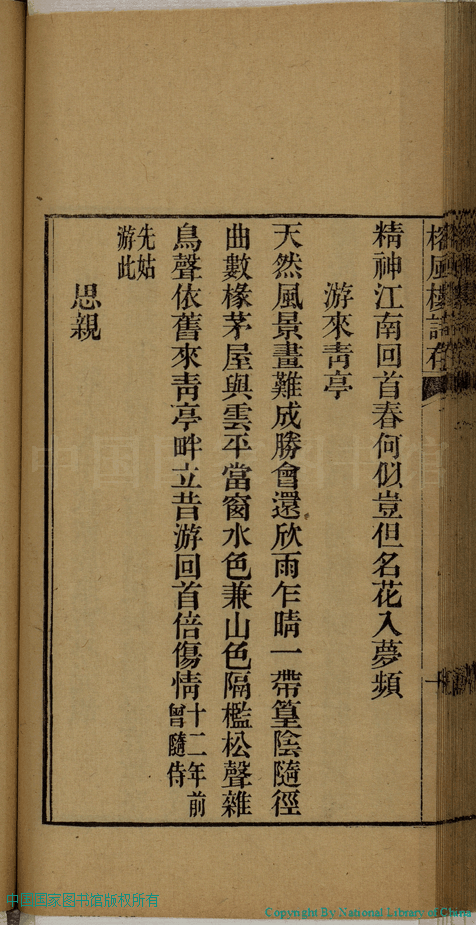 精神江南回首春何似豈但名花入夢頻
游來青亭
天然風景畫難成勝會還欣雨乍晴一帶篁陰隨徑
曲數椽茅屋與雲平當窗水色兼山色隔檻松聲雜
鳥聲依舊來青亭畔立昔游回首倍傷情十二年前曾隨侍
先姑游此
思親
中国国家图书馆
中国国家图书馆版权所有
Copyright By National Library of China